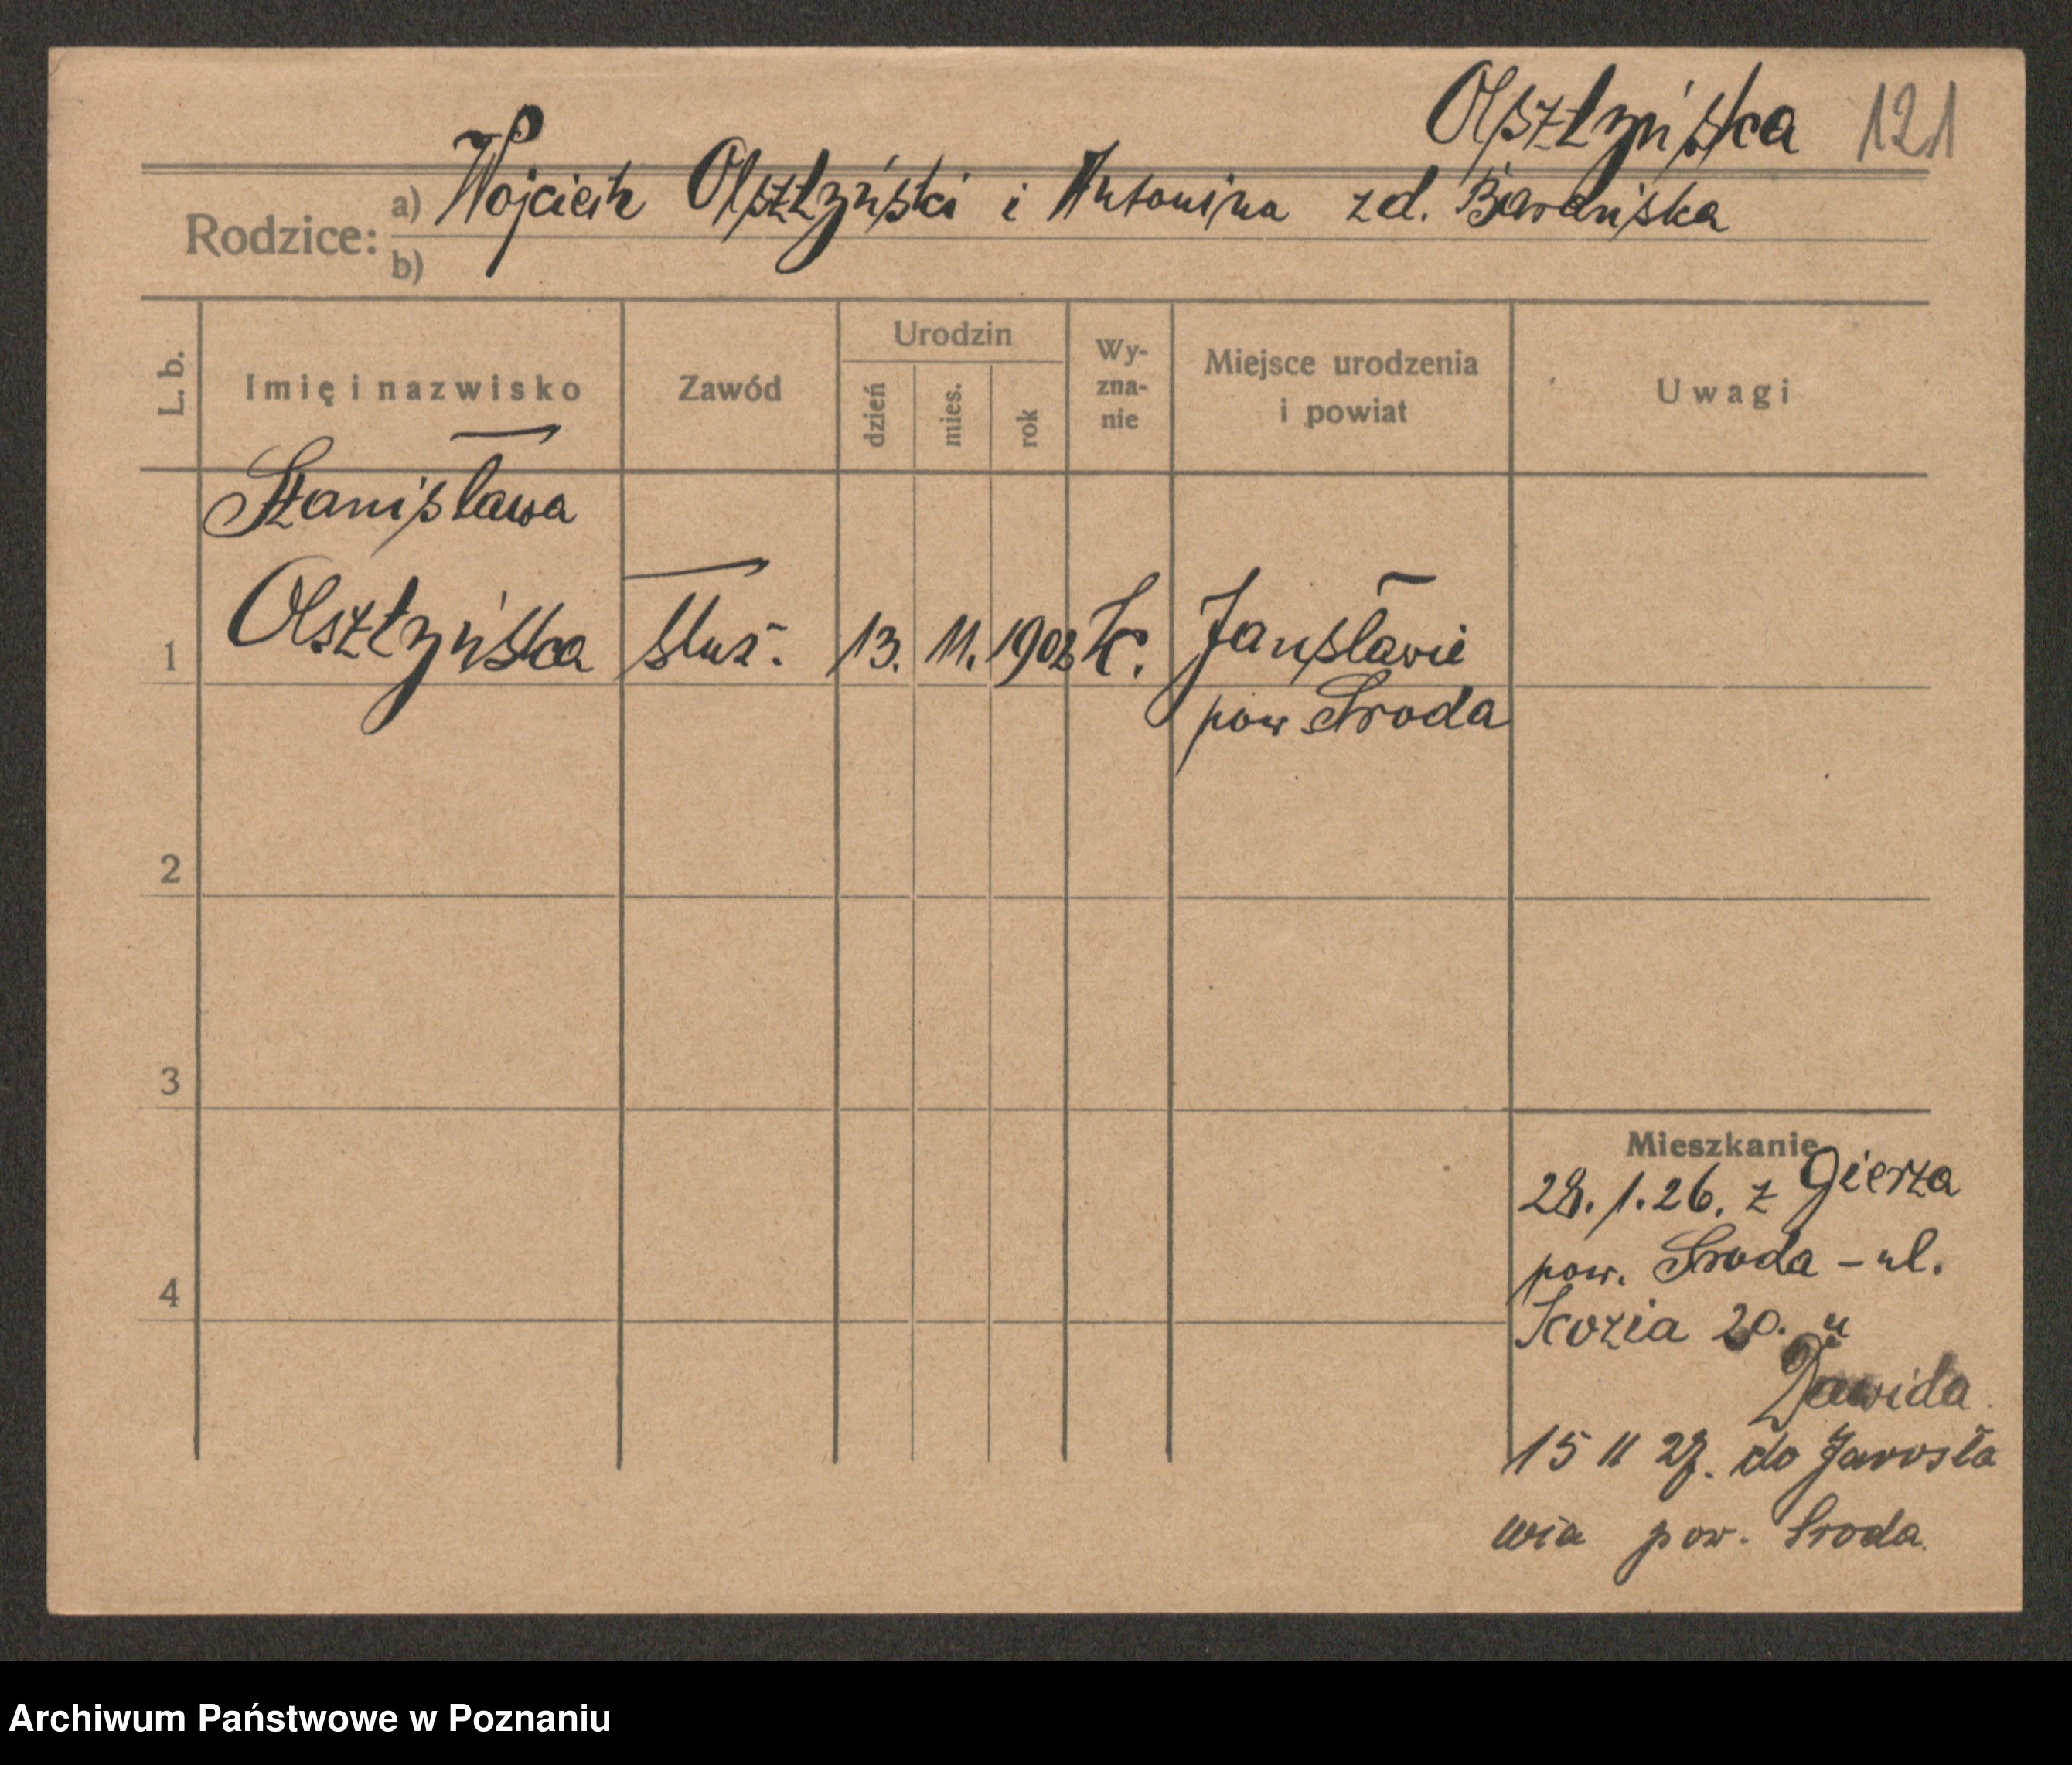 Olsztyńska 121
Rodzice: a) Wojciech Olsztyński i Antonina zd.
b)
L. b. Imię i nazwisko Zawód Urodzin dzień mies. rok Wyznanie Miejsce urodzenia i powiat Uwagi
Stanisława
1 Olsztyńska służ. 13. 11. K.
pow Sroda
2
3
Mieszkanie
28. 1. 26. z Gierza
pow. Sroda - ul.
4
Kozia 20. u
Dawida
15 11 27. do Jarosła
wia pow. Sroda.
Archiwum Państwowe w Poznaniu